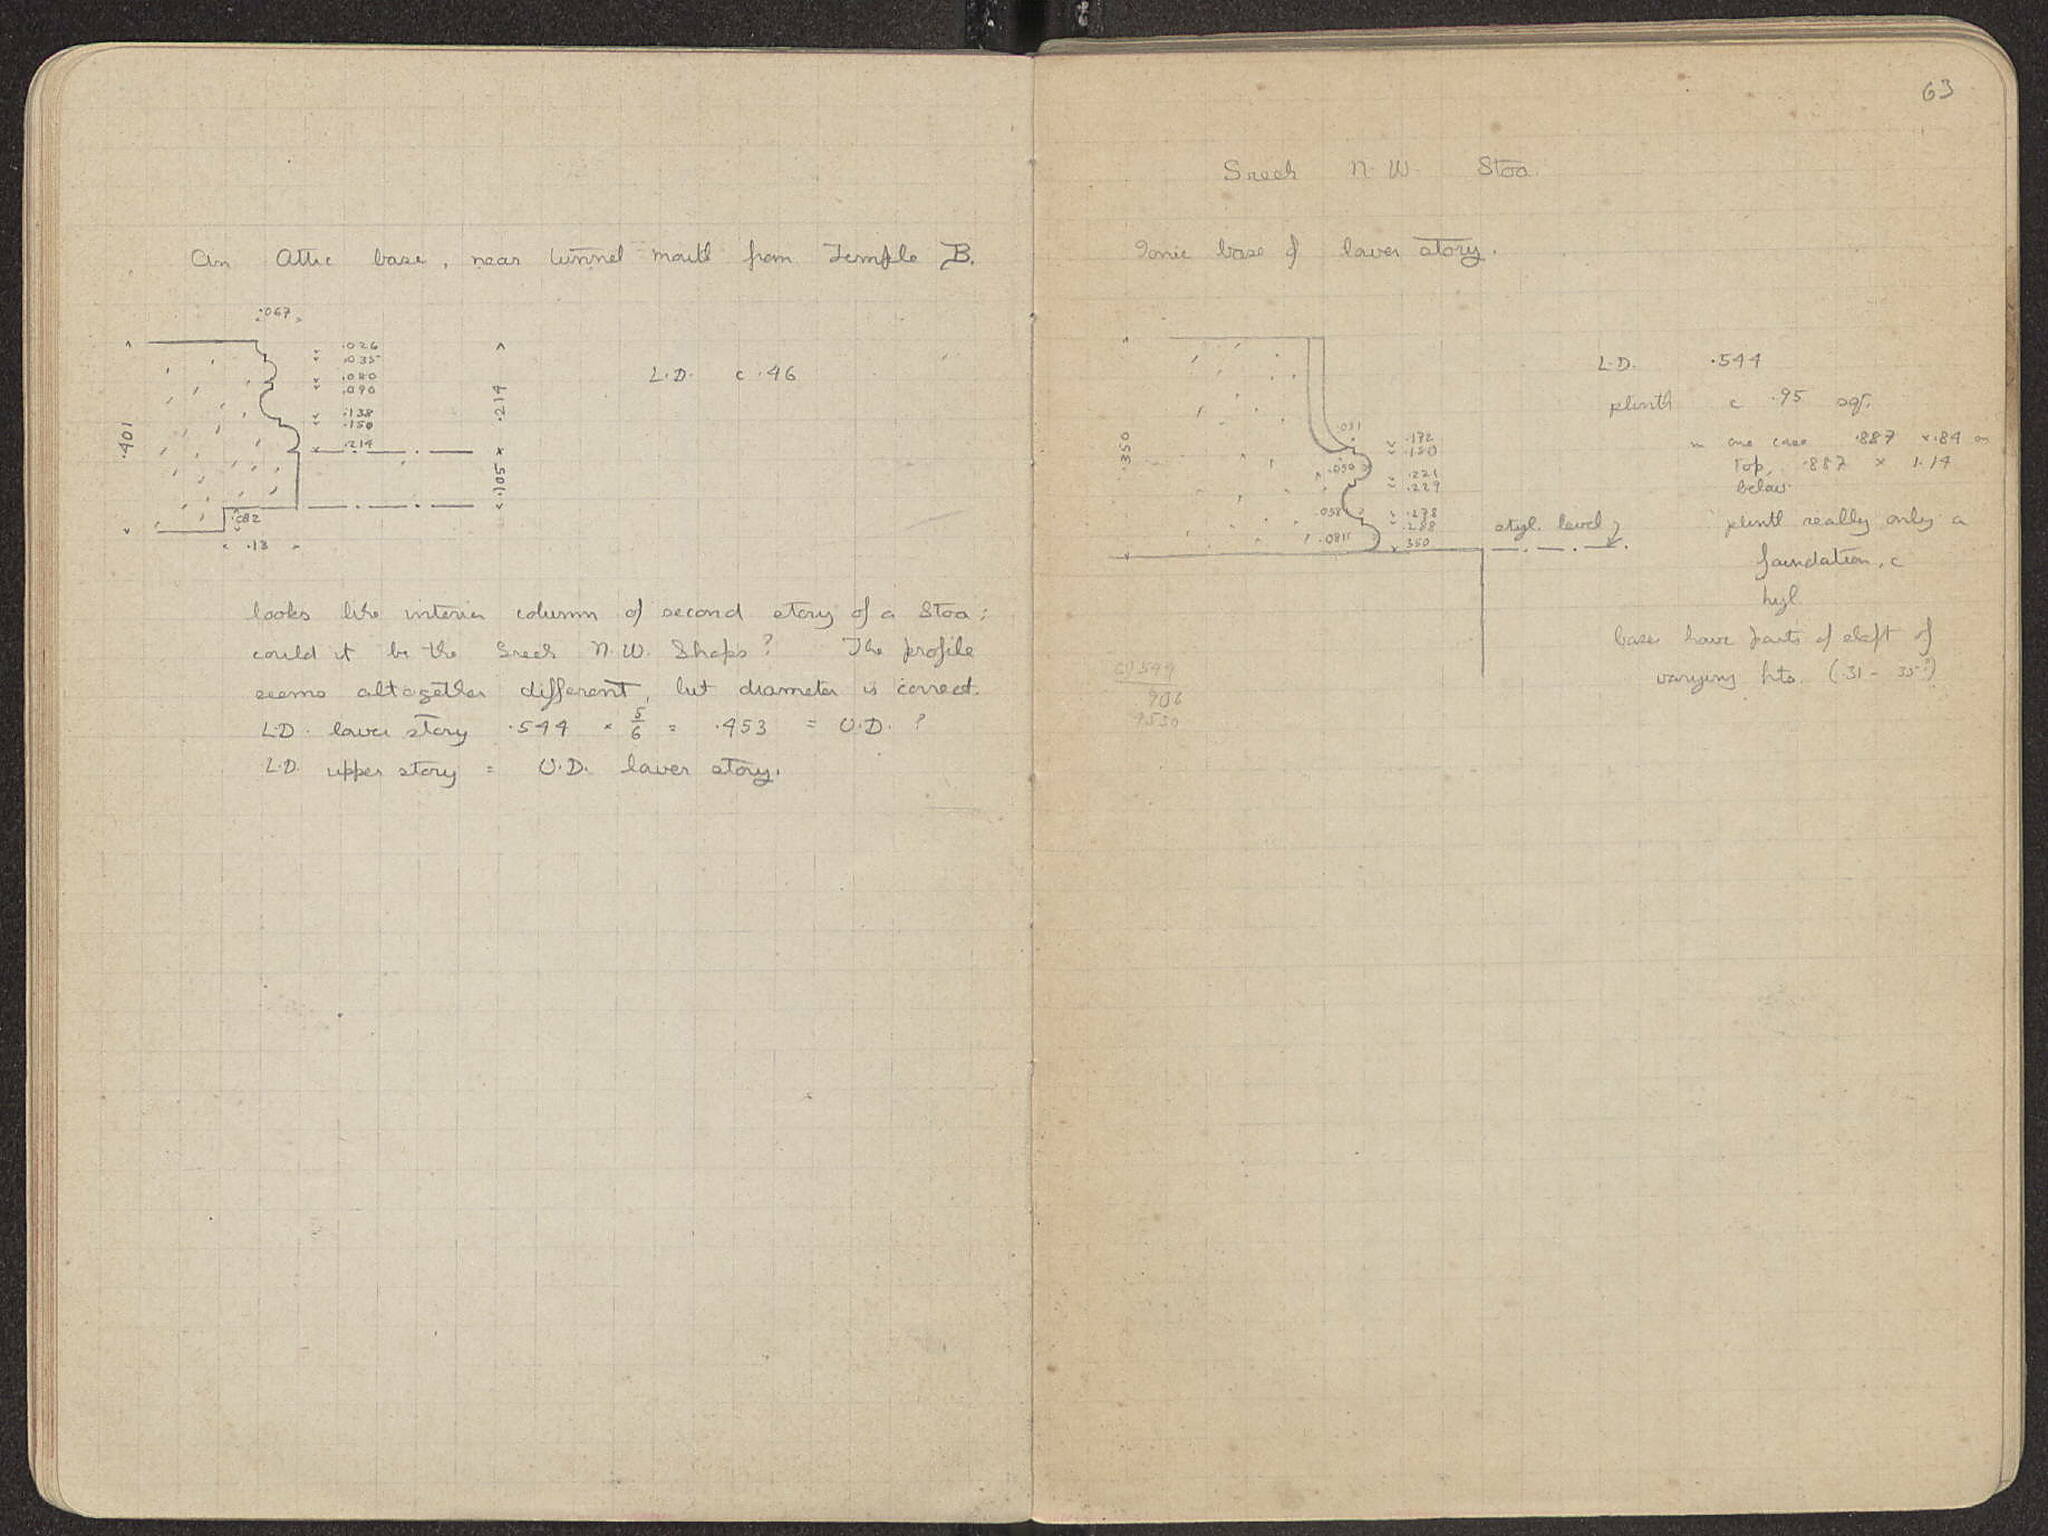 An Attic base, near tunnel mouth from Temple B.
.067
.026
.035
.080
.090
.138
.150
.214
.401
.214
.105
.082
.13
L.D. c .46
looks like interior column of second story of a Stoa;
could it be the Greek N.W. Shops? The profile
seems altogether different, but diameter is correct.
L.D. lower story .544 × 5/6 = .453 = U.D. ?
L.D. upper story = U.D. lower story.
63
Greek N.W. Stoa.
Ionic base of lower story.
.350
.051
.050
.058
.172
.180
.221
.229
.278
.288
.350
styl. level
L.D. .544
plinth c .95 sq.
in one case .887 × .84 on
top, .887 × 1.14
below.
plinth really only a
foundation, c
high
bases have parts of shaft of
varying hts. (.31 - .35?)
6).544
906
4530